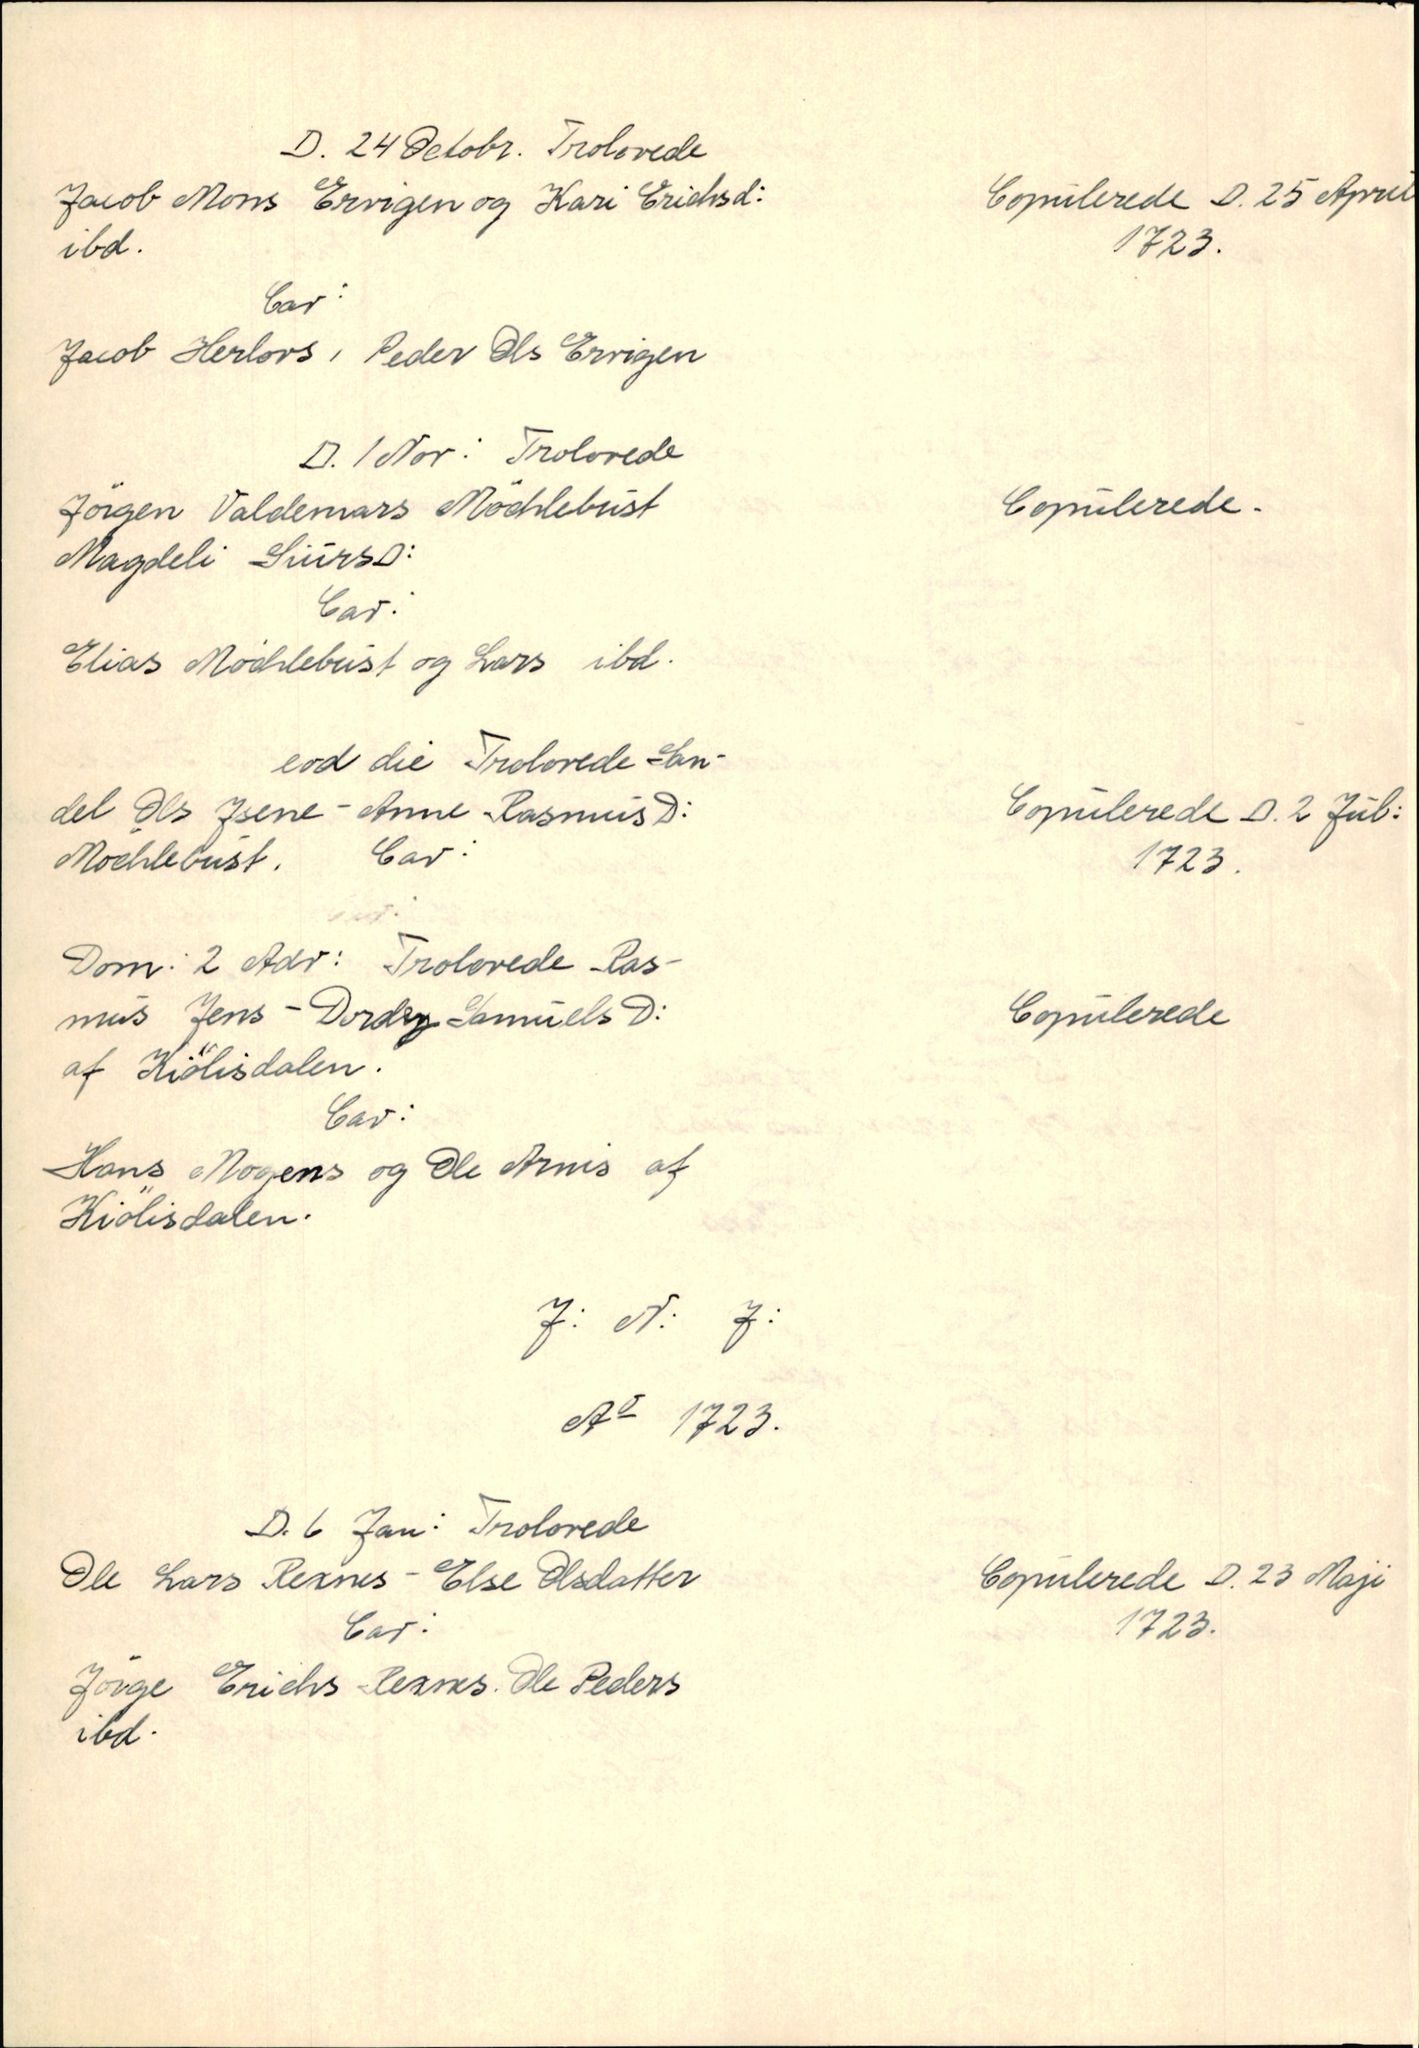 D. 24 Octobr. Trolovede
Jacob Mons Ervigen og Kari Erichsd: Copulerede D. 25 April
ibd. 1723.
Cav:
Jacob Herlovs, Peder Ols Ervigen
D. 1 Nov: Trolovede
Jörgen Valdemars Möchlebust Copulerede.
Magdeli Siursd:
Cav:
Elias Möchlebust og Lars ibd.
eod die Trolovede San-
del Ols Isene - Anne Rasmusd: Copulerede D. 2 Jul:
Möchlebust. Cav: 1723.
Dom: 2 Adv: Trolovede Ras-
mus Jens - Dordy Samuelsd: Copulerede
af Kiölisdalen.
Cav:
Hans Mogens og Ole Arnis af
Kiölisdalen.
J: N: J:
Ao 1723.
D. 6 Jan: Trolovede
Ole Lars Rexnes - Else Olsdatter Copulerede D. 23 Maji
Cav: 1723.
Jörge Erichs Rexnes. Ole Peders
ibd.